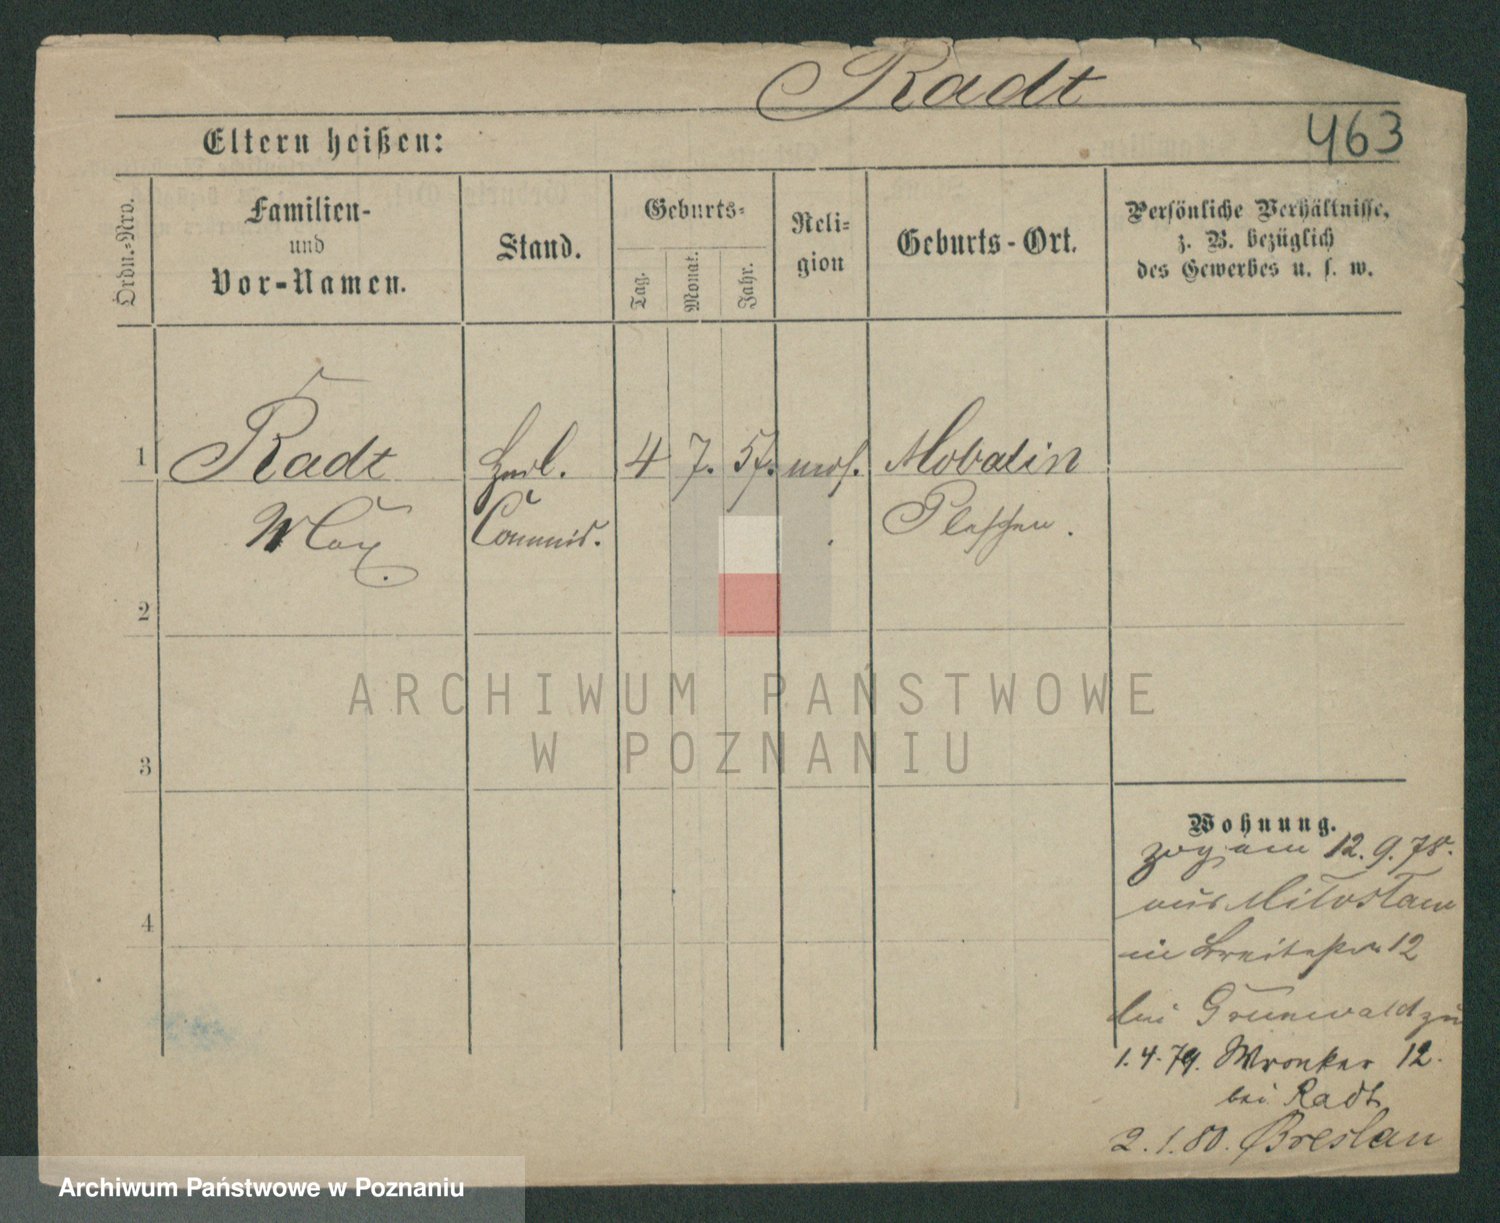 Radt
463
Eltern heißen:
Ordn.-Nro.
Familien-
und
Vor-Namen.
Stand.
Geburts-
Tag.
Monat.
Jahr.
Reli-
gion
Geburts-Ort.
Persönliche Verhältnisse,
z. B. bezüglich
des Gewerbes u. s. w.
1 Radt 4 7. 57. mos. Mobalin
Max. Commis. Pleschen.
2
3
4
ARCHIWUM PAŃSTWOWE
W POZNANIU
Wohnung.
zog am 12.9.78.
aus Miloslaw
in Breitestr. 12
bei Grunwald zu
1.4.79. Wronker 12.
bei Radt
2.1.80. Breslau
Archiwum Państwowe w Poznaniu